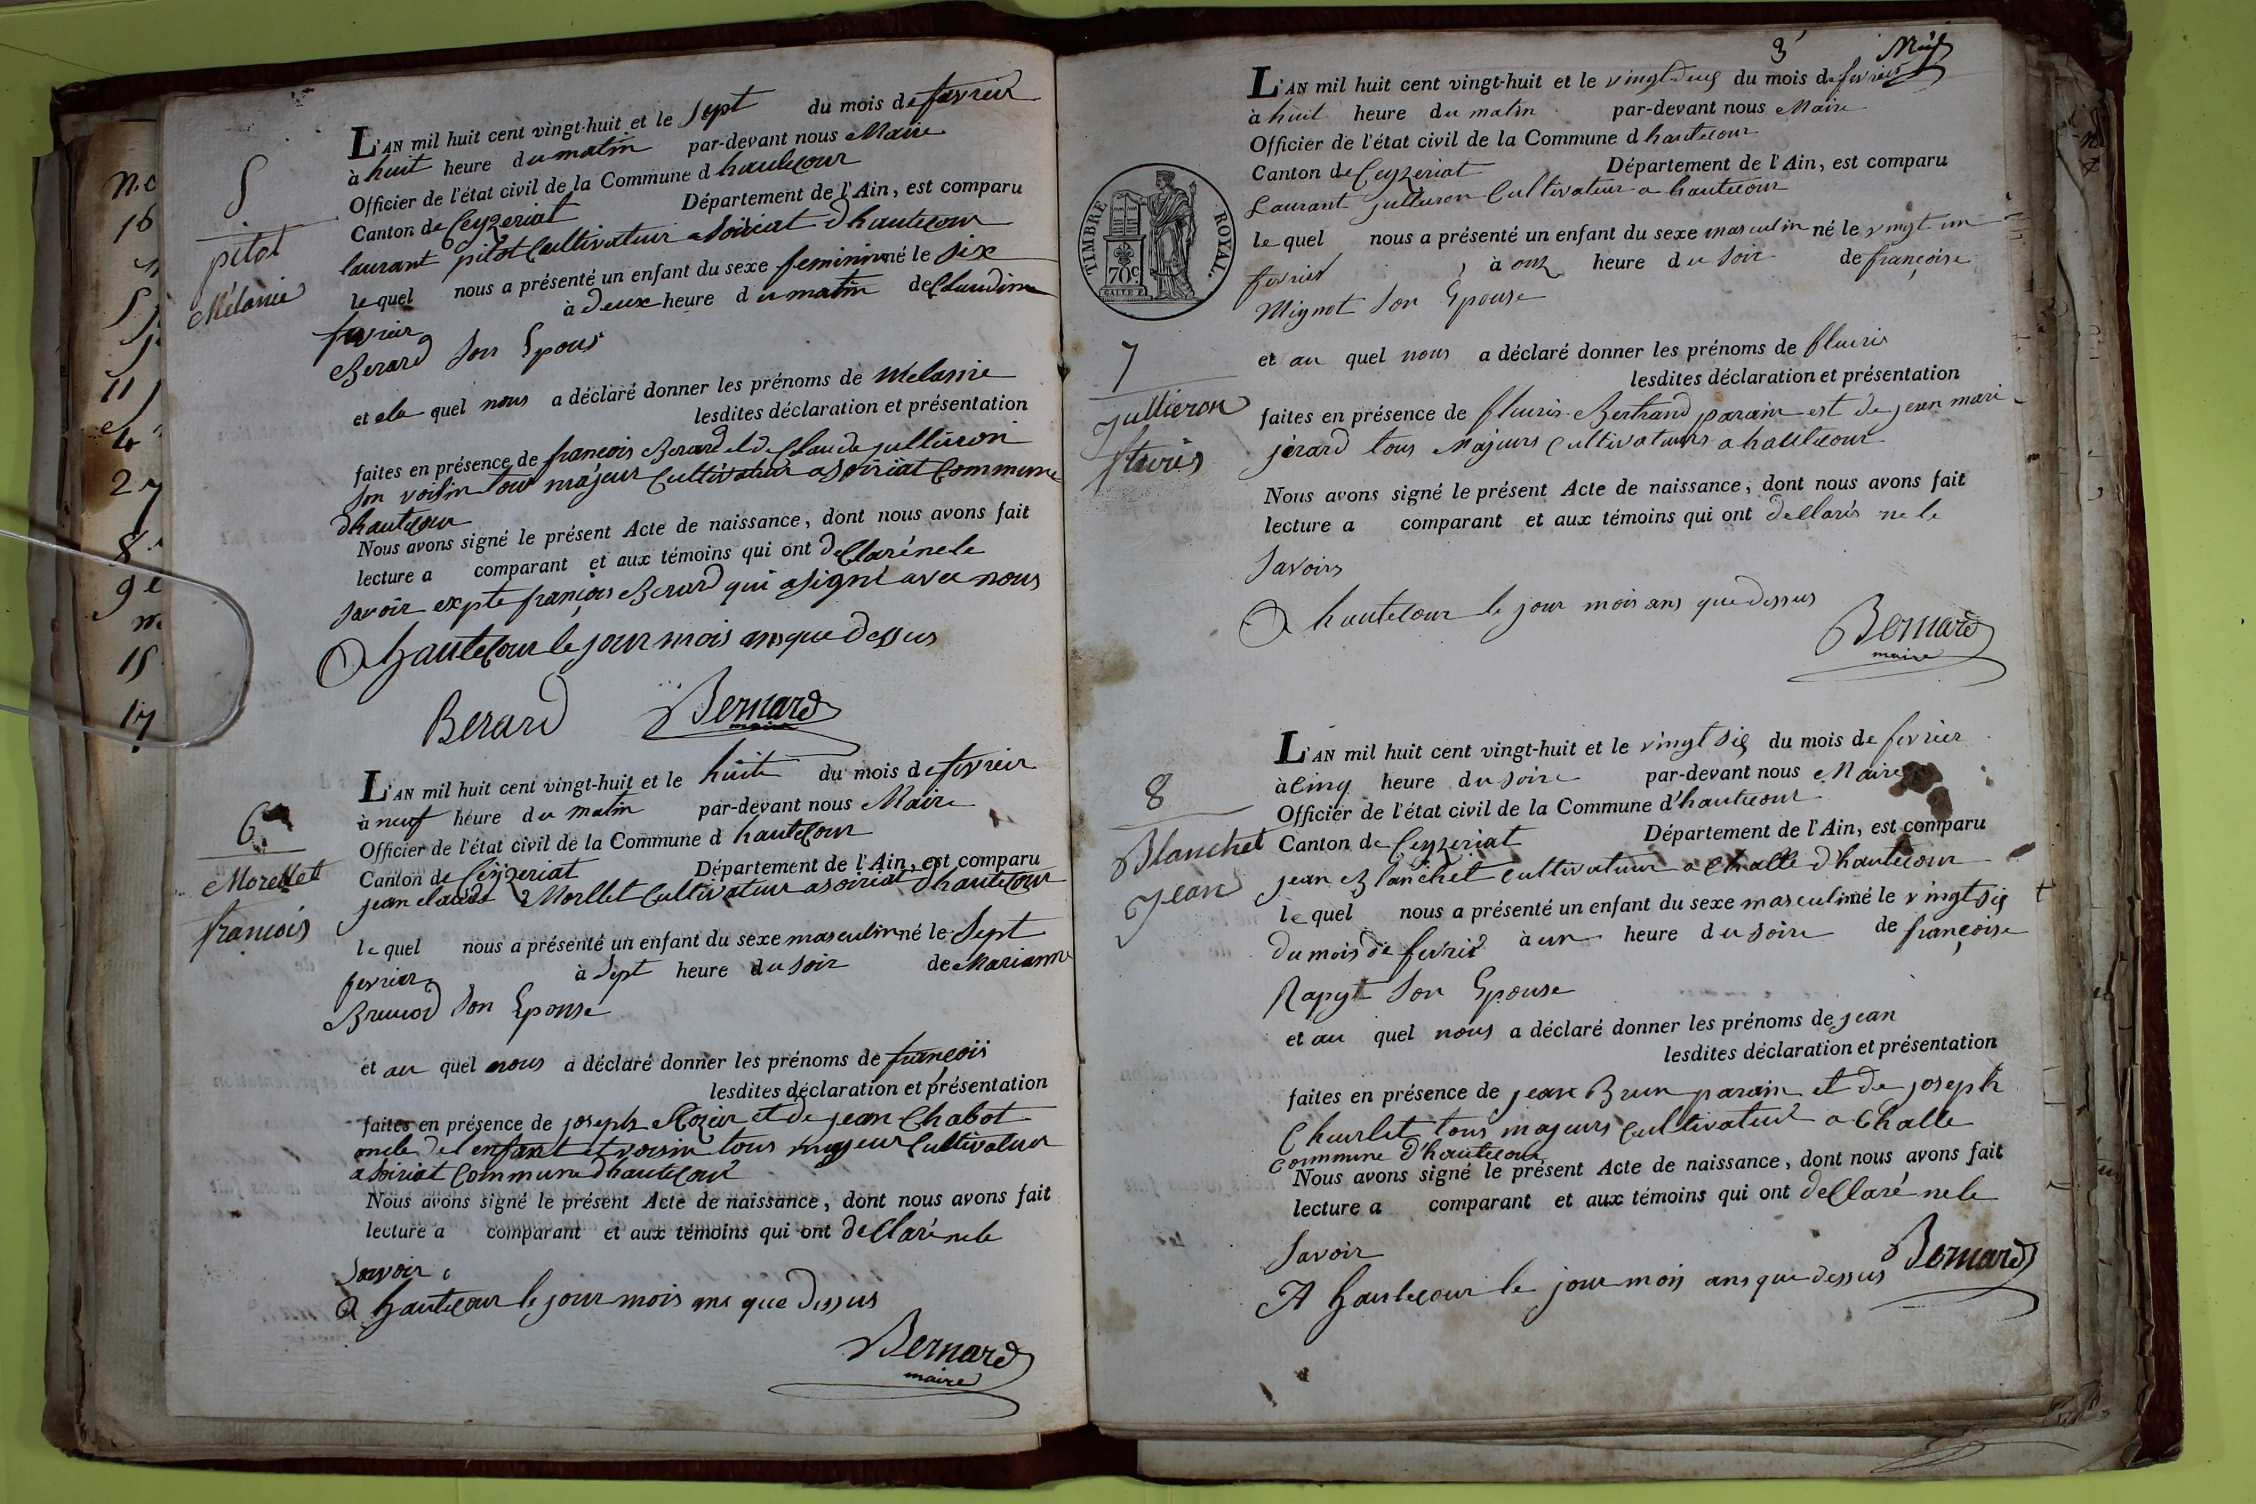 n.o
16
11
4
2
8
9
15
17
5
pitot
Mélanie
L'AN mil huit cent vingt-huit et le sept du mois de fevrier
à huit heure du matin par-devant nous Maire
Officier de l'état civil de la Commune d hautecour
Canton de Ceyzeriat Département de l'Ain, est comparu
laurant pitot Cultivateur a Soiriat d hautecour
le quel nous a présenté un enfant du sexe feminin né le six
fevrier à deux heure du matin de Claudine
Berard son Epous
et a la quel nous a déclaré donner les prénoms de Mélanie
lesdites déclaration et présentation
faites en présence de françois Berard et de Claude jullieron
son voisin tous majeur Cultivateur a soiriat Commune
d hautecour
Nous avons signé le présent Acte de naissance, dont nous avons fait
lecture a comparant et aux témoins qui ont déClaré ne le
savoir expte françois Berard qui a signé avec nous
A hautecour le jour mois ans que dessus
Berard Bernard
maire
6
Morellet
françois
L'AN mil huit cent vingt-huit et le huit du mois de fevrier
à neuf heure du matin par-devant nous Maire
Officier de l'état civil de la Commune d hautecour
Canton de Ceyzeriat Département de l'Ain, est comparu
jean claude Morllet Cultivateur a soiriat d hautecour
le quel nous a présenté un enfant du sexe masculin né le sept
fevrier à sept heure du soir de Marianne
Brunod son Epouse
et au quel nous a déclaré donner les prénoms de françois
lesdites déclaration et présentation
faites en présence de joseph Rozier et de jean Chabot
oncle del enfant et voisin tous majeur Cultivateur
a soiriat Commune d hautecour
Nous avons signé le présent Acte de naissance, dont nous avons fait
lecture a comparant et aux témoins qui ont déClaré ne le
savoir
A hautecour le jour mois ans que dessus
Bernard
maire
3
TIMBRE ROYAL.
70c
7
jullieron
fleuris
L'AN mil huit cent vingt-huit et le vingt deux du mois de fevrier
à huit heure du matin par-devant nous Maire
Officier de l'état civil de la Commune d hautecour
Canton de Ceyzeriat Département de l'Ain, est comparu
Laurant jullieron Cultivateur a hautecour
le quel nous a présenté un enfant du sexe masculin né le vingt un
fevrier à onze heure du soir de françoise
Mignot son Epouse
et au quel nous a déclaré donner les prénoms de fleuris
lesdites déclaration et présentation
faites en présence de fleuris Bertrand parain et de jean mari
jerard tous majeurs Cultivateurs a hautecour
Nous avons signé le présent Acte de naissance, dont nous avons fait
lecture a comparant et aux témoins qui ont déClarés ne le
savoirs
A hautecour le jour mois ans que dessus
Bernard
maire
8
Blanchet
jean
L'AN mil huit cent vingt-huit et le vingt six du mois de fevrier
à Cinq heure du soire par-devant nous Maire
Officier de l'état civil de la Commune d'hautecour
Canton de Ceyzeriat Département de l'Ain, est comparu
jean Blanchet Cultivateur a Challe d hautecour
le quel nous a présenté un enfant du sexe masculin né le vingt six
du mois de fevrier à un heure du soire de françoise
Rapyt son Epouse
et au quel nous a déclaré donner les prénoms de jean
lesdites déclaration et présentation
faites en présence de jean Brun parain et de joseph
Churlet tous majeurs Cultivateur a Challe
Commune d'hautecour
Nous avons signé le présent Acte de naissance, dont nous avons fait
lecture a comparant et aux témoins qui ont déClaré ne le
savoir
A hautecour le jour mois ans que dessus Bernard